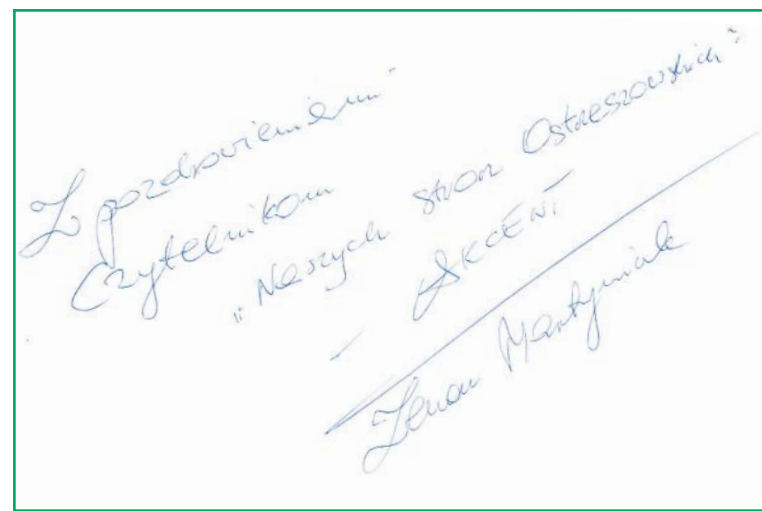 Z pozdrowieniami
Czytelnikom
„Naszych stron Ostrzeszowskich”
- AKCENT
Zenon Martyniuk